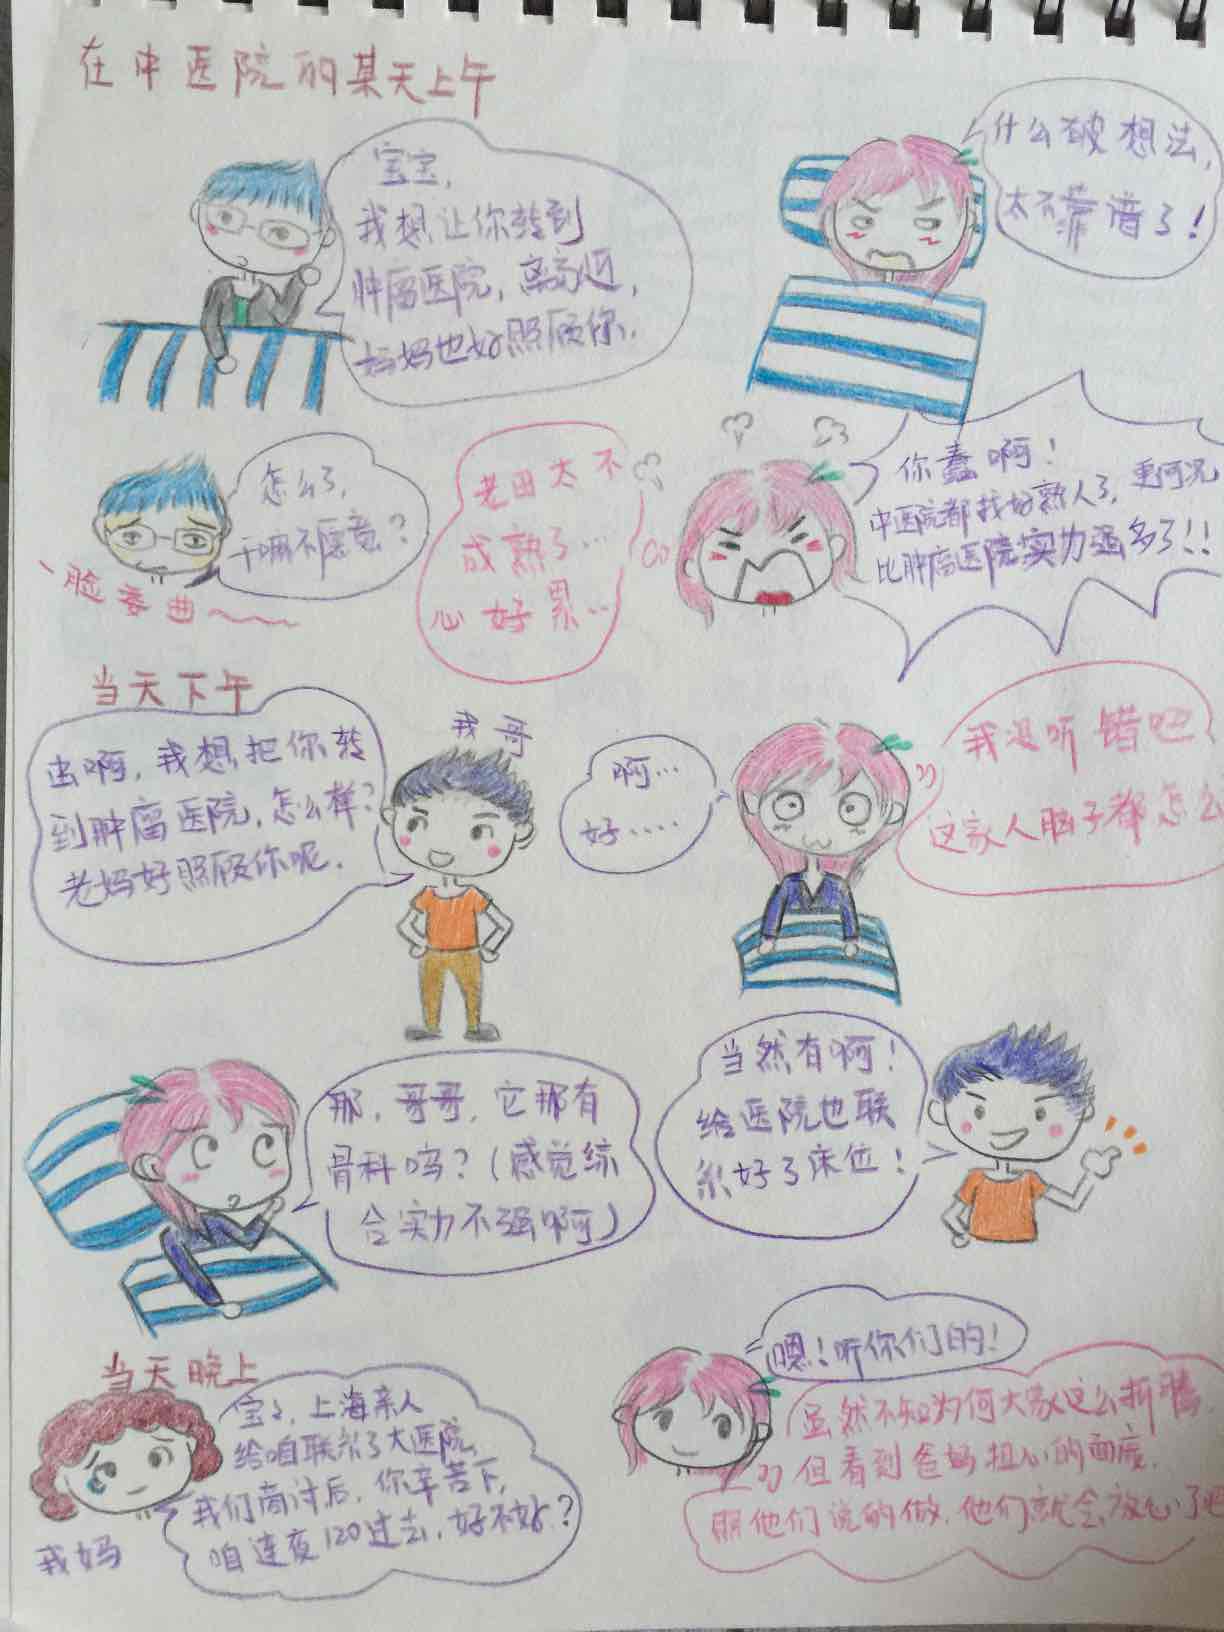 在中医院的某天上午
宝宝,
我想让你转到
肿瘤医院,离家近,
妈妈也好照顾你.
什么破想法,
太不靠谱了!
怎么了,
干嘛不愿意?
脸委曲~~~
老田太不
成熟了…
心好累…
你蠢啊!
中医院都找好熟人了,更何况
比肿瘤医院实力强多了!!
当天下午
出啊,我想把你转
到肿瘤医院,怎么样?
老妈好照顾你呢.
我哥
啊…
好….
我没听错吧
这家人脑子都怎么
那,哥哥,它那有
骨科吗?(感觉综
合实力不强啊)
当然有啊!
给医院也联
系好了床位!
当天晚上
宝宝,上海亲人
给咱联系了大医院
我们商讨后,你辛苦下,
咱连夜120过去,好不好?
我妈
嗯!听你们的!
虽然不知为何大家这么折腾,
但看到爸妈担心的面庞,
照他们说的做,他们就会放心了吧